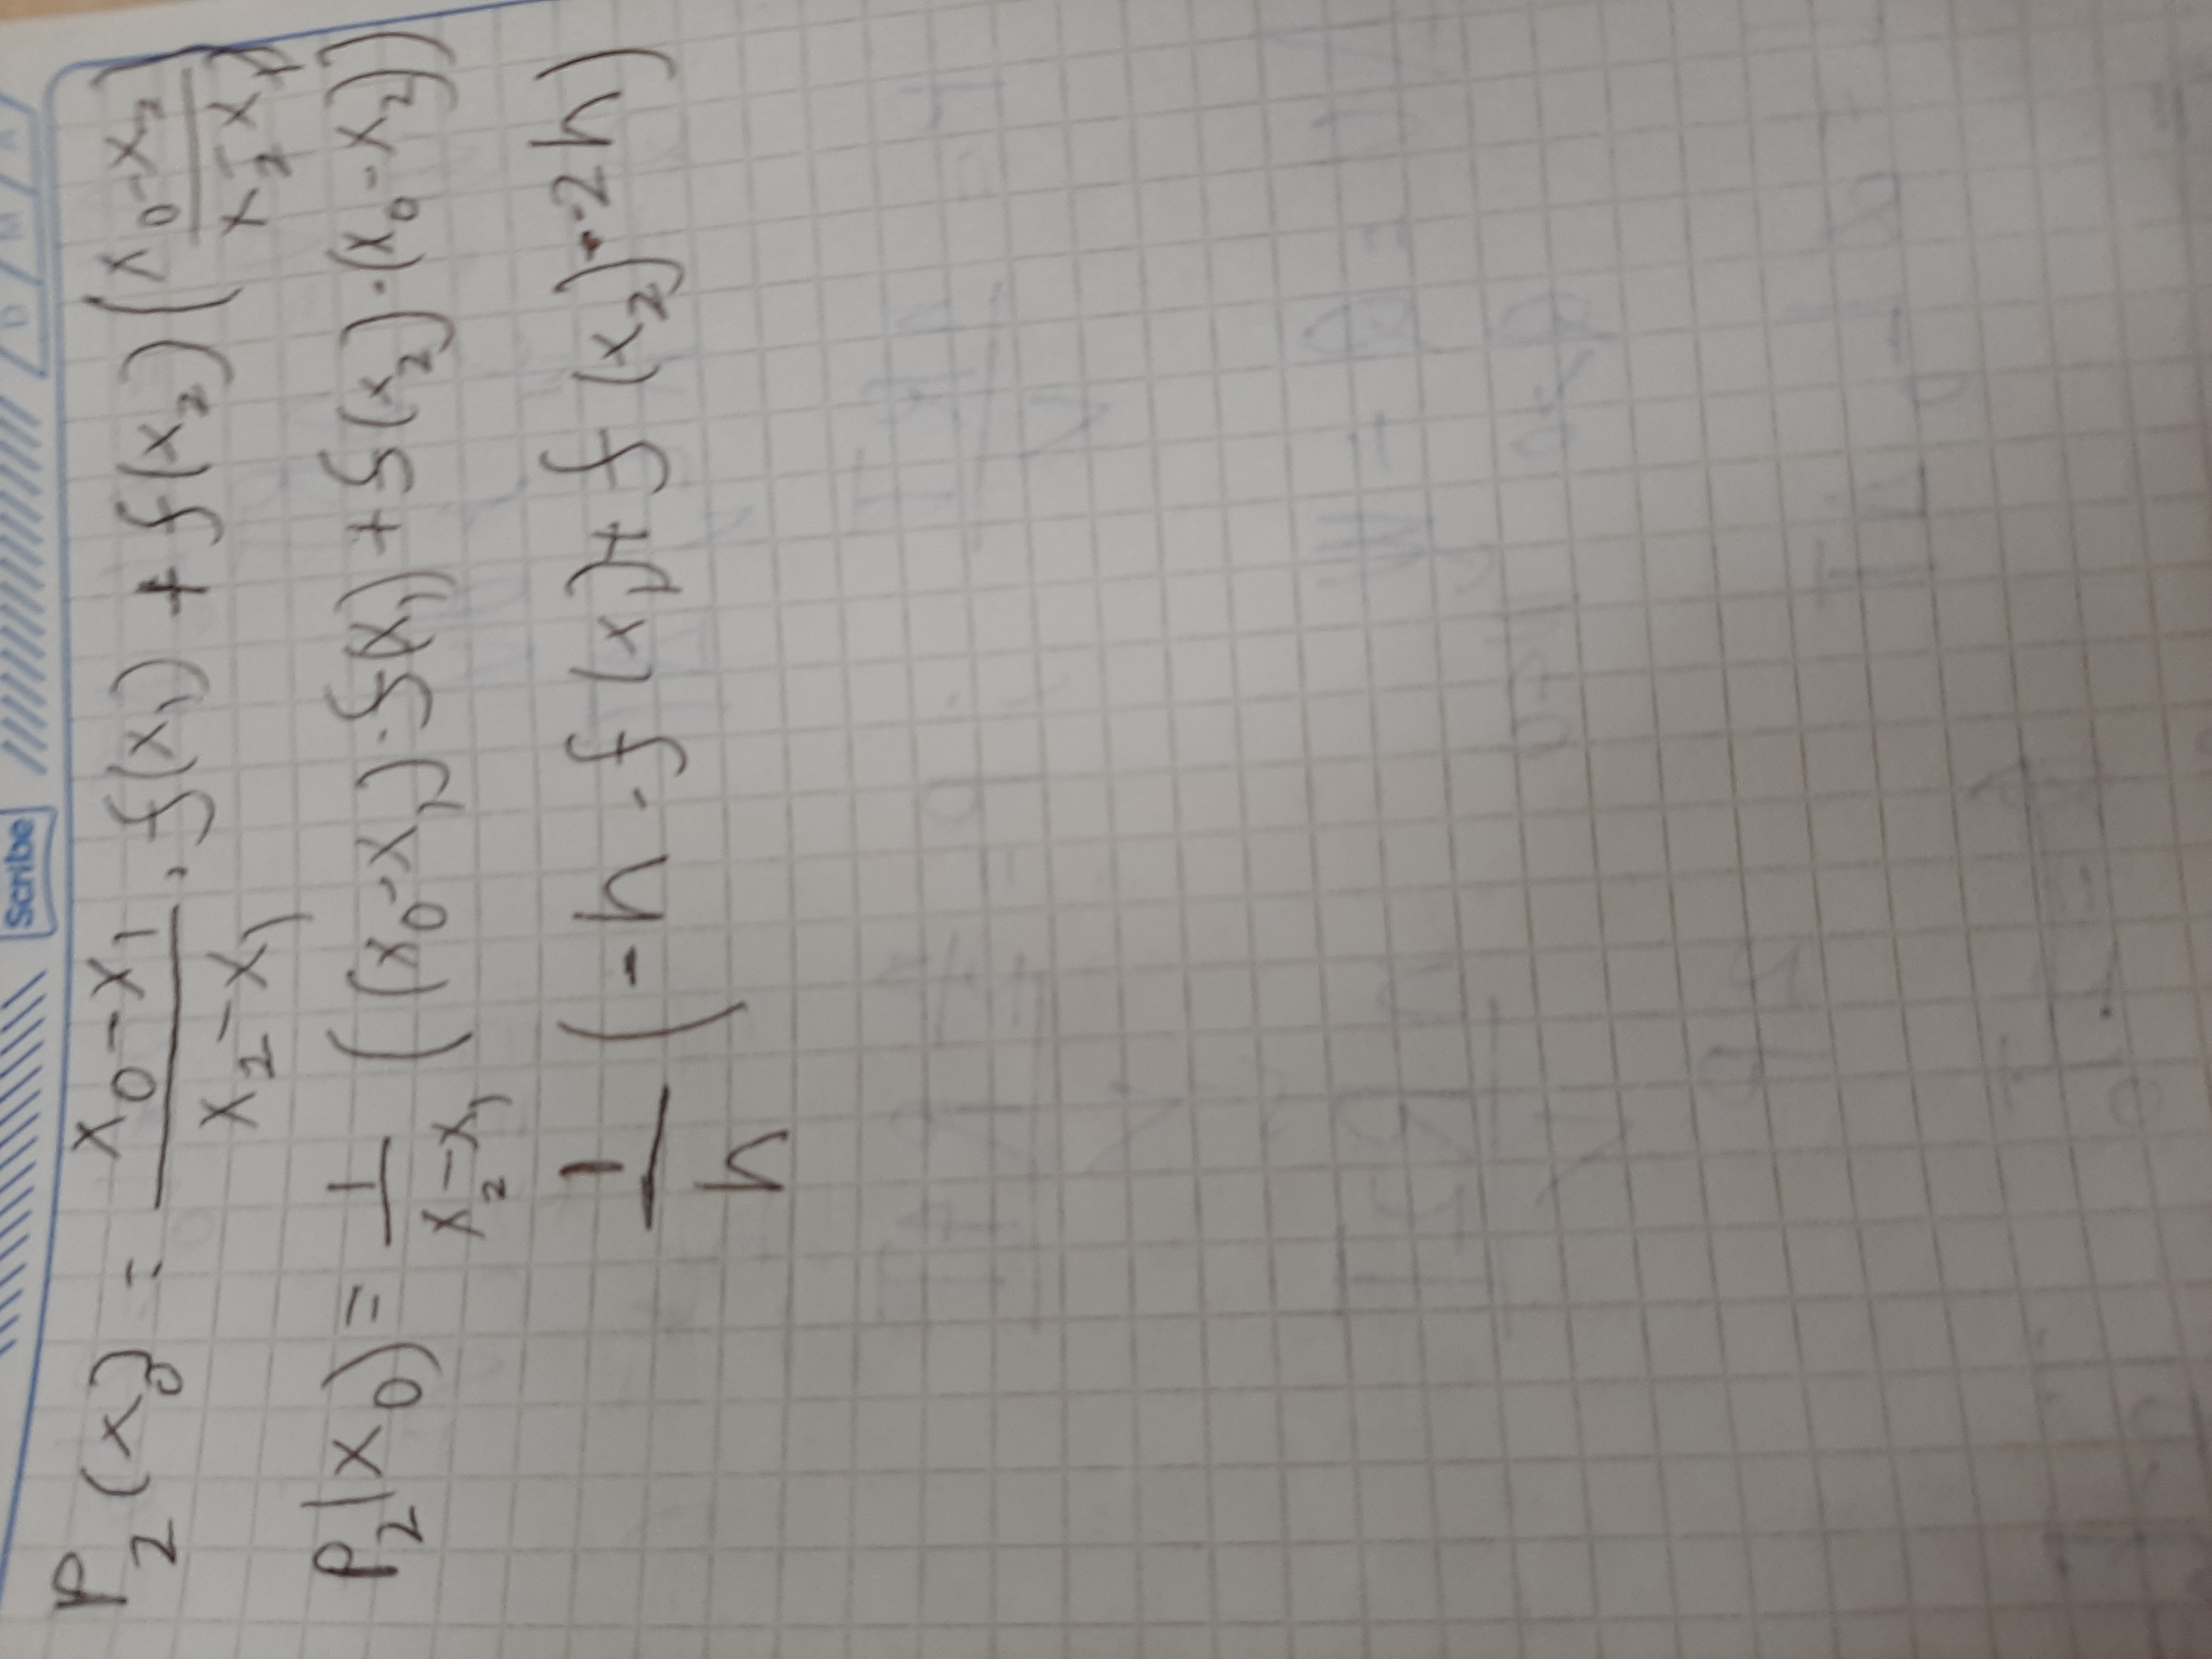 Scribe D / M / A
P₂(x₀) = (x₀-x₁)/(x₂-x₁) · f(x₁) + f(x₂) ((x₀-x₂)/(x₂-x₁))
P₂(x₀) = 1/(x₂-x₁) ((x₀-x₁)·f(x₁) + f(x₂)·(x₀-x₂))
1/h (-h · f(x₁) + f(x₂) · -2h)